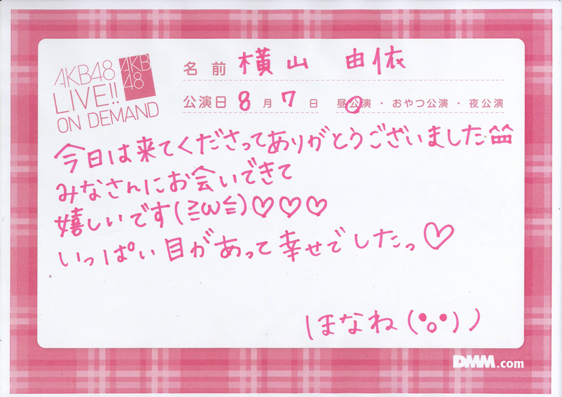 AKB48
LIVE!!
ON DEMAND
AKB
48
名前 横山 由依
公演日 8月7日 昼公演・おやつ公演・夜公演
今日は来てくださってありがとうございました
みなさんにお会いできて
嬉しいです(≧ω≦)♡♡♡
いっぱい目があって幸せでしたっ♡
ほなね(•o•))
DMM.com